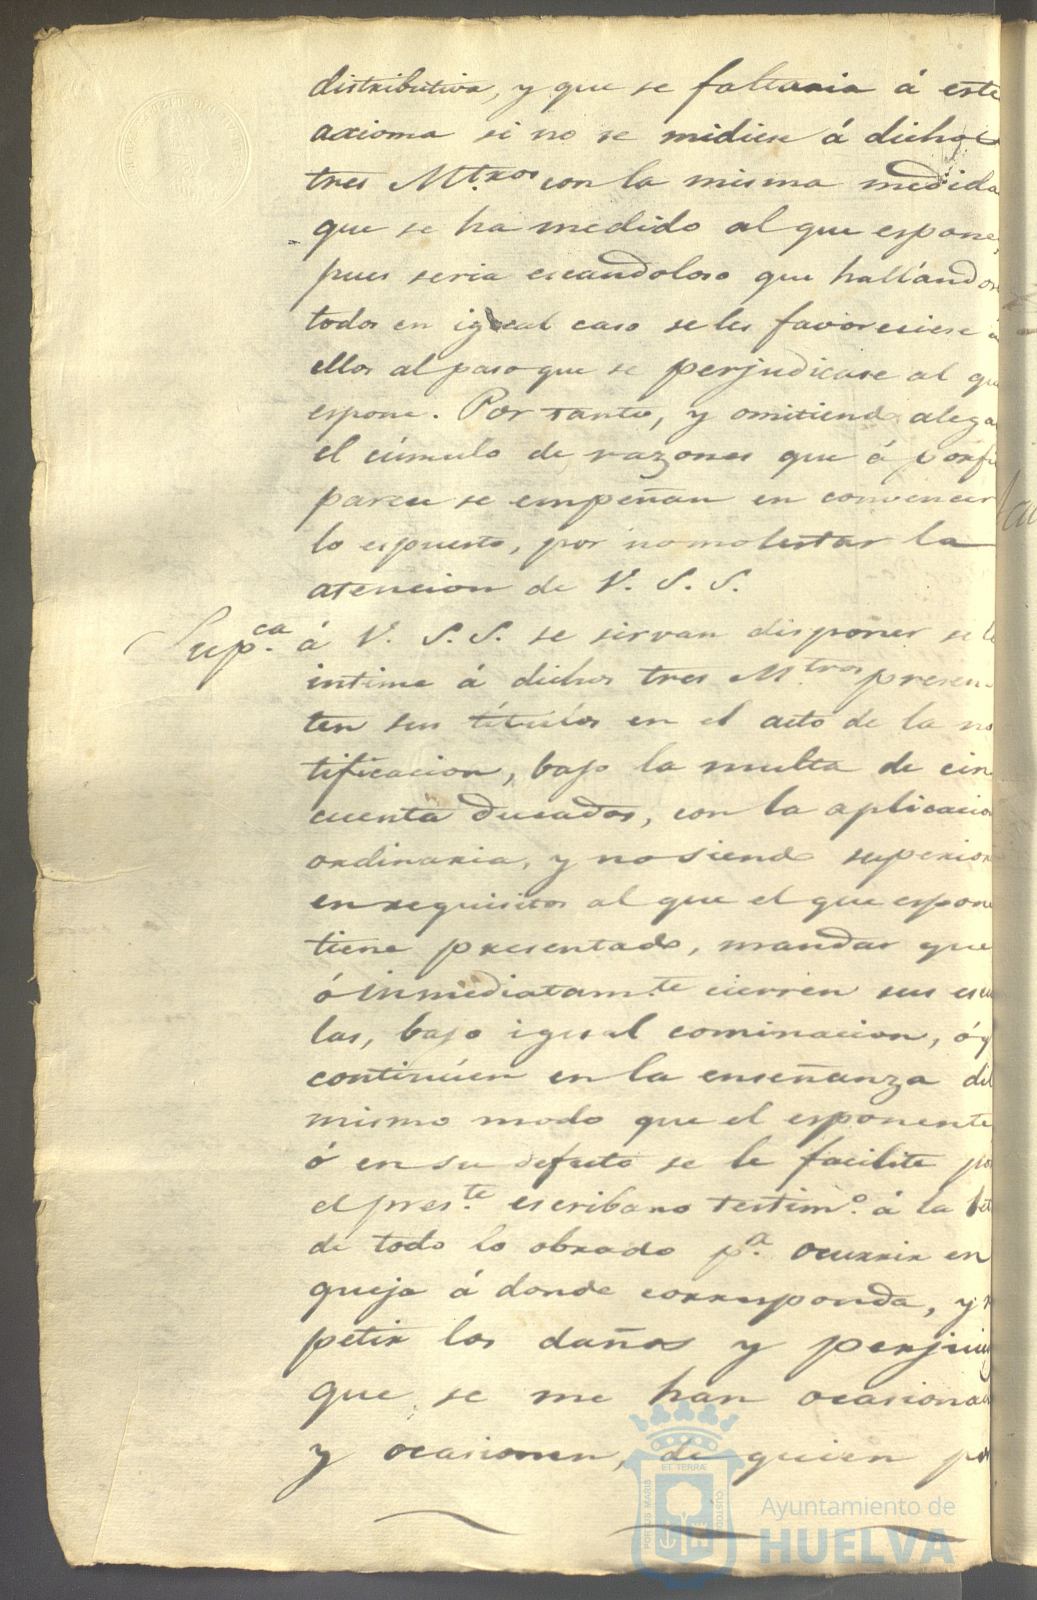 distributiva, y que se faltaria á este
axioma si no se midiese á dichos
tres M.tros con la misma medida
que se ha medido al que espone,
pues seria escandoloso que hallandos
todos en igual caso se les favoreciese á
ellos al paso que se perjudicase al qu
espone. Por tanto, y omitiendo alega
el cúmulo de razones que á porfi
parece se empeñan en convencer
lo espuesto, por no molestar la
atencion de V. S. S.
Sup.ca á V. S. S. se sirvan disponer se l
intime á dichos tres M.tros presen-
ten sus títulos en el acto de la no
tificacion, bajo la multa de cin
cuenta ducados, con la aplicacio
ordinaria, y no siendo superior
en requisitos al que el que espone
tiene presentado, mandar que
ó inmediatam.te cierren sus escu
las, bajo igual cominacion, ó q
continúen en la enseñanza del
mismo modo que el esponente
ó en su defecto se le facilite por
el pres.te escribano testim.o á la let
de todo lo obrado p.a ocurrir en
queja á donde corresponda, y r
petir los daños y perjuici
que se me han ocasionad
y ocasionen, de quien po
PORTUS MARIS
ET TERRÆ
CUSTODIA
Ayuntamiento de
HUELVA